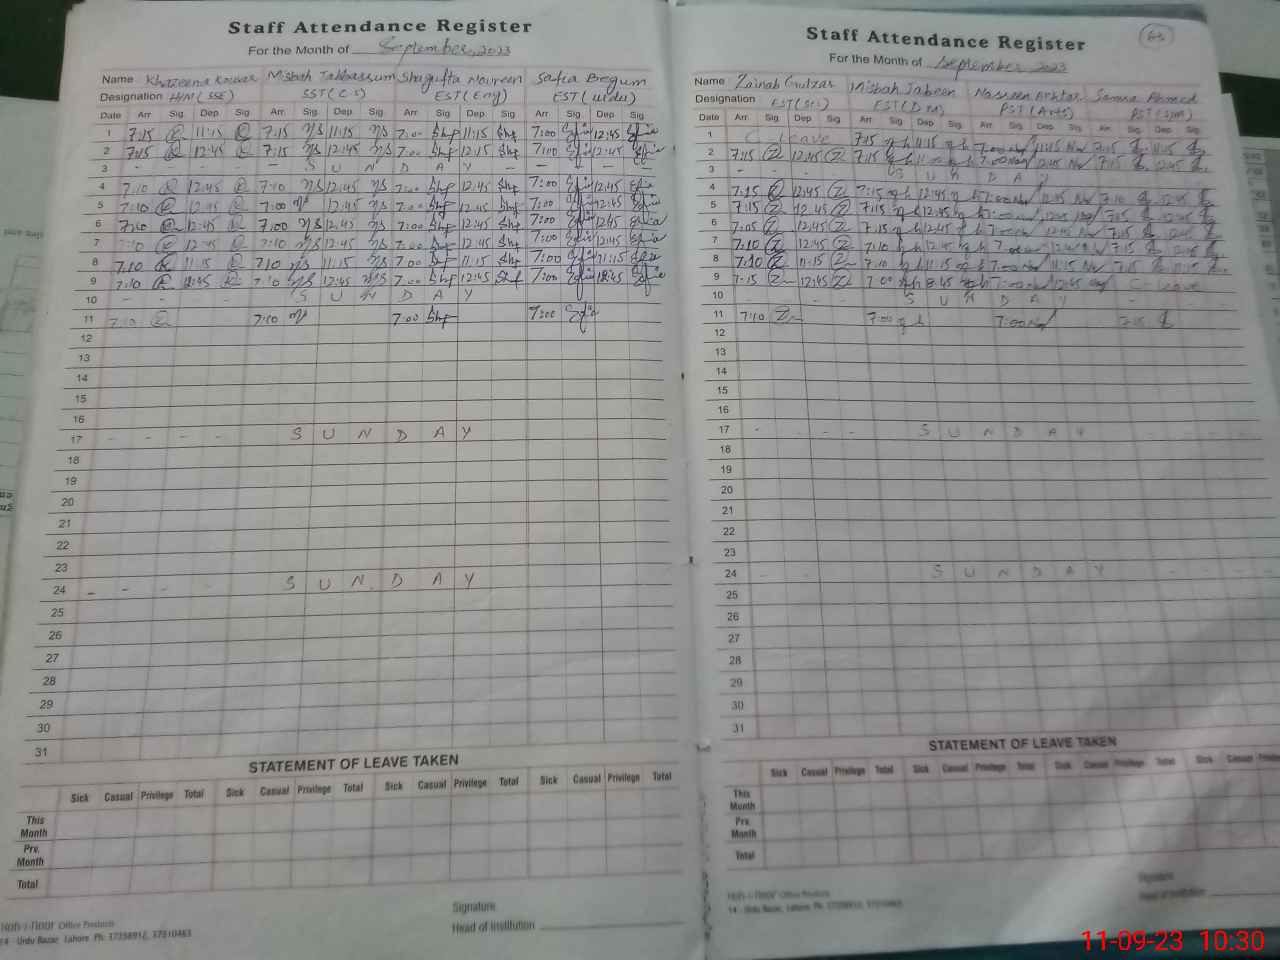 Staff Attendance Register
For the Month of September, 2023
Name Khazeena Kousar Misbah Tabbassum Shagufta Nasreen Safia Begum
Designation H/M (SSE) SST (C.S) EST (Eng) EST (Urdu)
Date Arr Sig Dep Sig Arr Sig Dep Sig Arr Sig Dep Sig Arr Sig Dep Sig
1 7:15 11:15 7:15 11:15 7:00 11:15 7:00 12:45
2 7:15 12:45 7:15 12:45 7:00 12:15 7:00 12:45
3 - S U N D A Y - - - -
4 7:10 12:45 7:10 12:45 7:00 12:45 7:00 12:45
5 7:10 12:45 7:00 12:45 7:00 12:45 7:00 12:45
6 7:00 12:45 7:00 12:45 7:00 12:45 7:00 12:45
7 7:10 12:45 7:10 12:45 7:00 12:45 7:00 12:45
8 7:10 11:15 7:10 11:15 7:00 11:15 7:00 11:15
9 7:10 12:45 7:10 12:45 7:00 12:45 7:00 12:45
10 - - - - S U N D A Y
11 7:10 7:10 7:00 7:00
12
13
14
15
16
17 - - - - S U N D A Y
18
19
20
21
22
23
24 - - - - S U N D A Y
25
26
27
28
29
30
31
STATEMENT OF LEAVE TAKEN
Sick Casual Privilege Total Sick Casual Privilege Total Sick Casual Privilege Total Sick Casual Privilege Total
This Month
Prv. Month
Total
Signature
Head of Institution
Office Products
14 - Urdu Bazar, Lahore Ph: 37358912, 37310463
65
Staff Attendance Register
For the Month of September 2023
Name Zainab Gulzar Misbah Jabeen Nasreen Akhtar Samra Ahmed
Designation EST (Sci) EST (D.M) PST (Arts) PST (S/M)
Date Arr Sig Dep Sig Arr Sig Dep Sig Arr Sig Dep Sig Arr Sig Dep Sig
1 C Leave 7:15 11:15 7:00 11:15 7:15 11:15
2 7:15 12:45 7:15 7:00 12:45 7:15 12:45
3 - - - - S U N D A Y
4 7:15 12:45 7:15 12:45 7:00 12:45 7:10 12:45
5 7:15 12:45 7:15 12:45 7:00 12:45 7:15 12:45
6 7:05 12:45 7:15 12:45 7:00 12:45 7:15 12:45
7 7:10 12:45 7:10 12:45 7:00 12:45 7:15 12:45
8 7:10 11:15 7:10 11:15 7:00 11:15 7:15 11:15
9 7:15 12:45 7:00 7:00 12:45 C-Leave
10 - - - - S U N D A Y
11 7:10 7:00 7:00 7:15
12
13
14
15
16
17 - - - S U N D A Y - - - -
18
19
20
21
22
23
24 - - - - S U N D A Y - - -
25
26
27
28
29
30
31
STATEMENT OF LEAVE TAKEN
Sick Casual Privilege Total Sick Casual Privilege Total Sick Casual Privilege Total Sick Casual Privilege
This Month
Prv. Month
Total
Signature
Head of Institution
Office Products
14 - Urdu Bazar, Lahore Ph: 37358912, 37310463
11-09-23 10:30